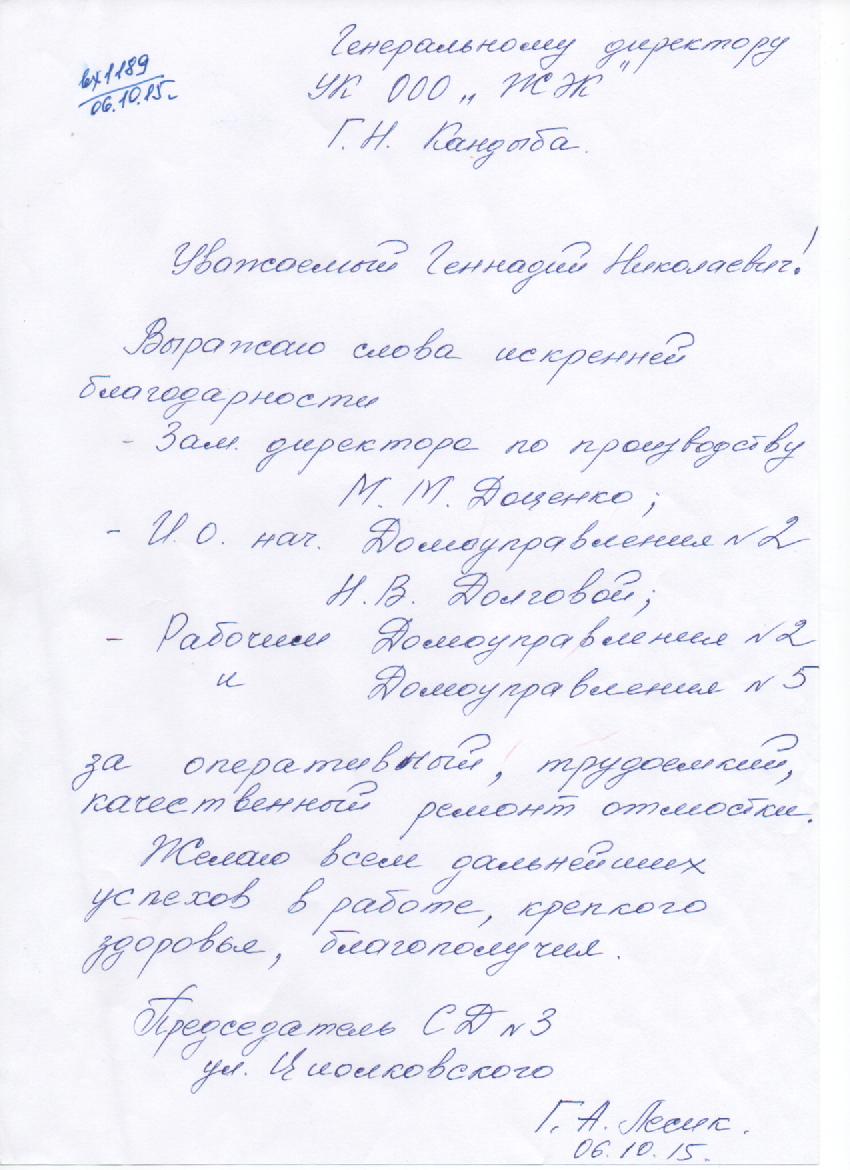 вх1189
06.10.15г.
Генеральному директору
УК ООО „ЖЭК"
Г.Н. Кандыба.
Уважаемый Геннадий Николаевич!
Выражаю слова искренней
благодарности
- Зам. директора по производству
М. М. Доценко;
- И.О. нач. Домоуправления N2
Н.В. Долговой;
- Рабочим Домоуправления N2
и Домоуправления N5
за оперативный, трудоемкий,
качественный ремонт отмостки.
Желаю всем дальнейших
успехов в работе, крепкого
здоровья, благополучия.
Председатель СД N3
ул. Циолковского
Г. А. Лесик.
06.10.15.